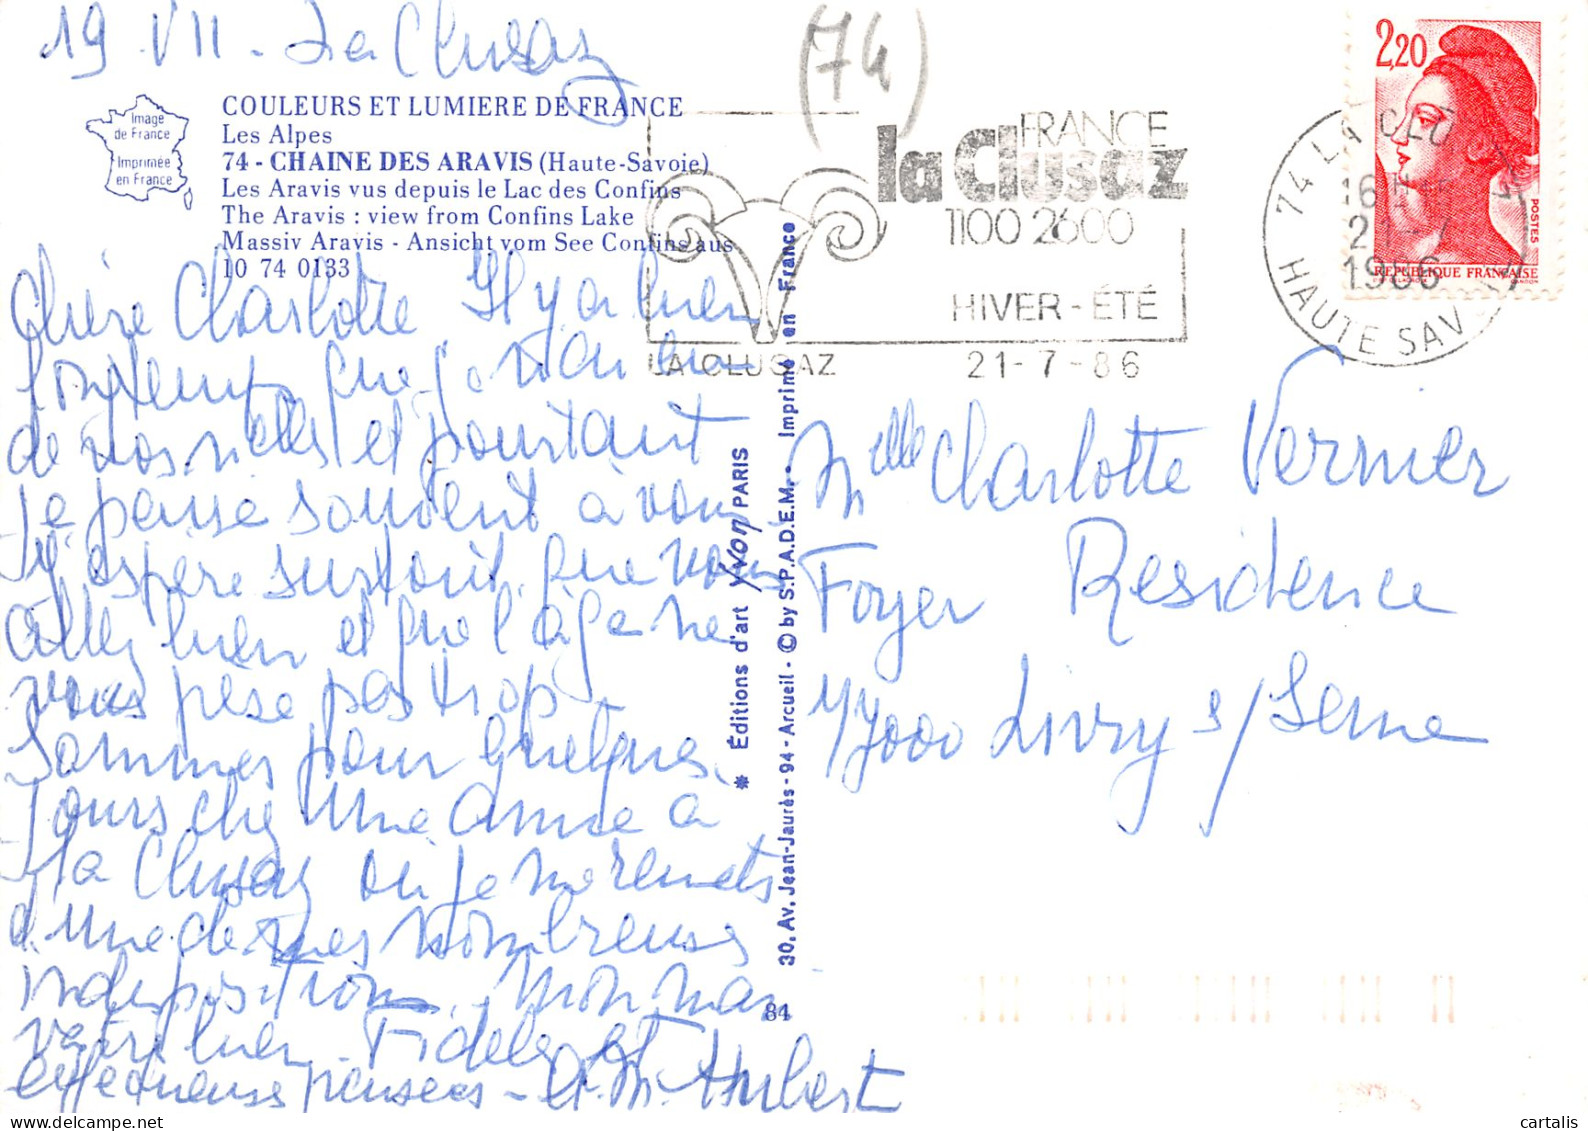 19 VII - La Clusaz
(74)
Image
de France
Imprimée
en France
COULEURS ET LUMIERE DE FRANCE
Les Alpes
74 - CHAINE DES ARAVIS (Haute-Savoie)
Les Aravis vus depuis le Lac des Confins
The Aravis : view from Confins Lake
Massiv Aravis - Ansicht vom See Confins aus
10 74 0133
FRANCE
la Clusaz
1100 2600
HIVER - ÉTÉ
LA CLUSAZ
21-7-86
74 LA CLUSAZ
16H
1986
HAUTE SAV
2,20
POSTES
REPUBLIQUE FRANÇAISE
Chère Charlotte Il y a bien
longtemps que je n'ai eu
de vos nlles et pourtant
je pense souvent à vous
J'y espère surtout que vous
allez bien et que l'âge ne
vous pèse pas trop -
Sommes pour quelques
jours chez une amie à
La Clusaz où je me remets
d'une de mes nombreuses
indispositions. Mon mari
va bien. Fidèles et
affectueuses pensées - A.M. Hubert
* Éditions d'art YVON PARIS
30, Av. Jean-Jaurès - 94 - Arcueil - © by S.P.A.D.E.M. • Imprimé en France
84
Melle Charlotte Vernier
Foyer Residence
77000 Livry s/Seine
www.cartalis.com